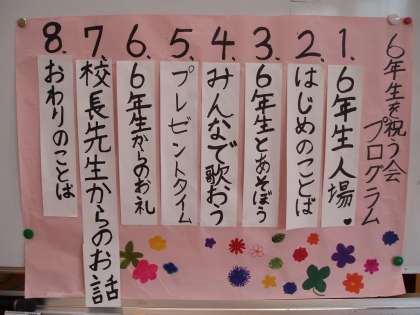 6年生を祝う会
プログラム
1. 6年生入場。
2. はじめのことば
3. 6年生とあそぼう
4. みんなで歌おう
5. プレゼントタイム
6. 6年生からのお礼
7. 校長先生からのお話
8. おわりのことば